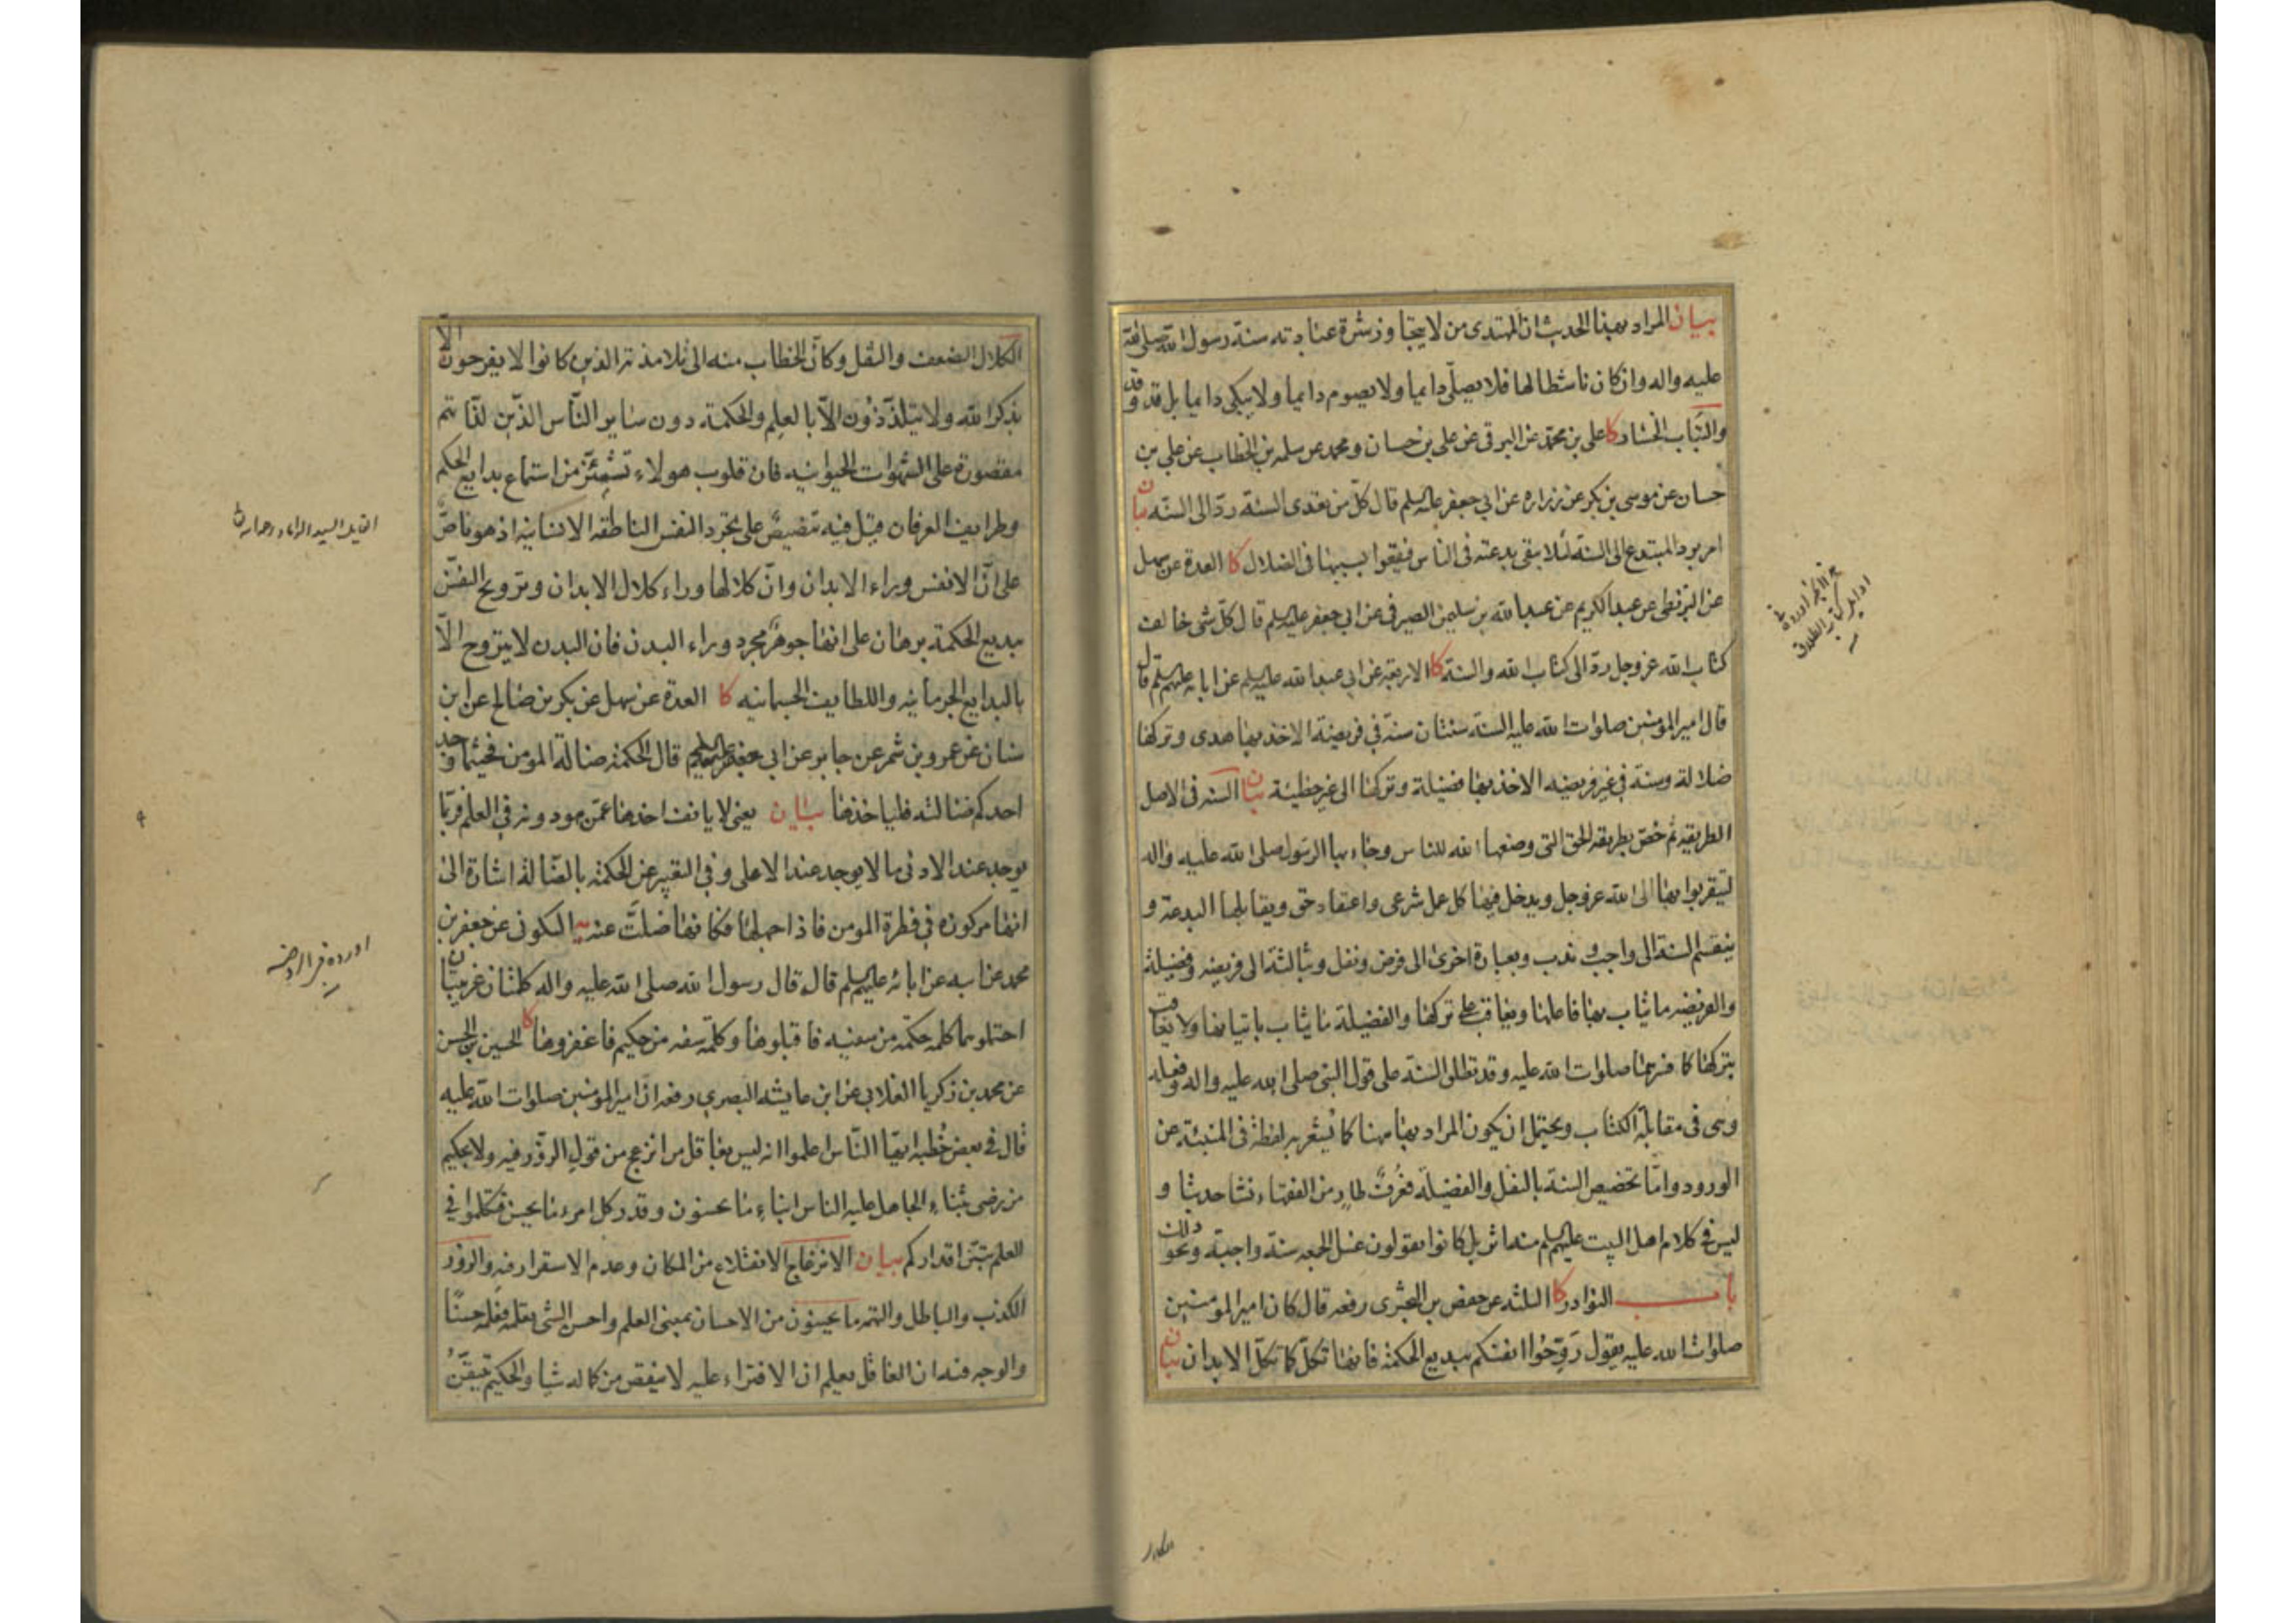 بيان المراد بهذا الحديث ان المهتدى من لا يتجاوز شرة عبادته سنة رسول الله صلى الله
عليه واله وان كان ناشطا لها فلا يصلّى دايما ولا يصوم دايما ولا يبكى دايما بل قد وقد
والتباب الخسار كا على بن محمد عن البرقى عن على بن حسان ومحمد عن سلمه بن الخطاب عن على بن
حسان عن موسى بن بكر عن زراره عن ابي جعفر عليه السلم قال كلّ من تعدى السنّة ردّ الى السنّه بيان
امر برد المبتدع الى السنة لئلا يبقى بدعته فى الناس فيقعوا بسببها فى الضلال كا العدة عن سهل
عن البزنطى عن عبد الكريم عن عبد الله بن سليمن الصيرفى عن ابي جعفر عليه السلم قال كلّ شئ خالف
كتاب الله عز وجل ردّ الى كتاب الله والسنة كا الاربعة عن ابي عبد الله عليه السلم عن ابائه عليهم السلم قال
قال امير المؤمنين صلوات الله عليه السنة سنتان سنّة في فريضة الاخذ بها هدى وتركها
ضلالة وسنة في غير فريضه الاخذ بها فضيلة وتركها الى غير خطيئة بيان السنه فى الاصل
الطريقه ثم خصّ بطريقه الحق التى وضعها الله للناس وجاء بها الرسول صلى الله عليه واله
ليتقربوا بها الى الله عز وجل ويدخل فيها كل عمل شرعى واعتقاد حق ويقابلها البدعة و
ينقسم السنة الى واجب وندب وبعبارة اخرى الى فرض ونفل وبثالثة الى فريضه وفضيلة
والفريضه ما يثاب بها فاعلها ويعاقب على تركها والفضيلة ما يثاب باتيانها ولا يعاقب
بتركها كا فسرهما صلوات الله عليه وقد تطلق السنة على قول النبى صلى الله عليه واله وفعله
وهى فى مقابلة الكتاب ويحتمل ان يكون المراد بها ههنا كا يُشعر به لفظة فى المنبئة عن
الورود وامّا تخصيص السنة بالنفل والفضيلة فعُرفٌ طارٍ من الفقهاء نشا حديثا و
ليس فى كلام اهل البيت عليهم السلم منه اثر بل كانوا يقولون غسل الجمعه سنة واجبة ونحو ذلك
باب النوادر كا الثلثة عن حفص بن البخترى رفعه قال كان امير المؤمنين
صلوات الله عليه يقول رَوِّحُوا انفسكم ببديع الحكمة فانها تكلّ كا تكلّ الابدان بيان
الكلال الضعف والثقل وكأن الخطاب منه الى تلامذته الذين كانوا لا يفرحون الّا
بذكر الله ولا يتلذّذون الّا بالعلم والحكمة دون ساير النّاس الذّين لذّاتهم
مقصورة على الشهوات الحيوانيه فان قلوب هولاء تشمئزّ من استماع بدايع الحكم
وطرايف العرفان قيل فيه تنصيصٌ على تجرد النفس الناطقه الانسانيه اذ هو ناصٌّ
على انّ الانفس وراء الابدان وانّ كلالها وراء كلال الابدان وترويح النفس
ببديع الحكمة برهان على انها جوهر مجرد وراء البدن فان البدن لا يتروح الّا
بالبدايع الجرمانيه واللطايف الجسمانيه كا العدة عن سهل عن بكر بن صالح عن ابن
سنان عن عمرو بن شمر عن جابر عن ابي جعفر عليه السلم قال الحكمة ضالة المومن فحيثما وجد
احدكم ضالته فلياخذها بيان يعنى لا يانف اخذها عمّن هو دونه في العلم فربّما
يوجد عند الادنى ما لا يوجد عند الاعلى وفي التعبير عن الحكمة بالضالة اشارة الى
انها مركوزه في فطرة المومن فاذا جهلها فكانها ضلّت عنه يه السكونى عن جعفر بن
محمد عن ابيه عن ابائه عليهم السلم قال قال رسول الله صلى الله عليه واله كلمتان غريبتان
احتملوهما كلمه حكمة من سفيه فاقبلوها وكلمة سفه من حكيم فاغفروها كا الحسين بن الحسن
عن محمد بن زكريا الغلابي عن ابن عايشه البصري رفعه ان امير المؤمنين صلوات الله عليه
قال في بعض خُطبه ايها النّاس اعلموا انه ليس بعاقل من انزعج من قول الزّور فيه ولا بحكيم
من رضى بثناء الجاهل عليه الناس ابناء ما يحسنون وقدر كل امرء ما يحسن فتكلموا في
العلم تبيّن اقداركم بيان الانزعاج الانقلاع من المكان وعدم الاستقرار فيه والزور
الكذب والباطل والتهمه ما يحسنون من الاحسان بمعنى العلم واحسن الشئ تعلمه فعلمه حسنًا
والوجه فيه ان العاقل يعلم ان الافتراء عليه لا ينقص من كماله شيا والحكيم تيقّن
اورده في الروضه
الكلال